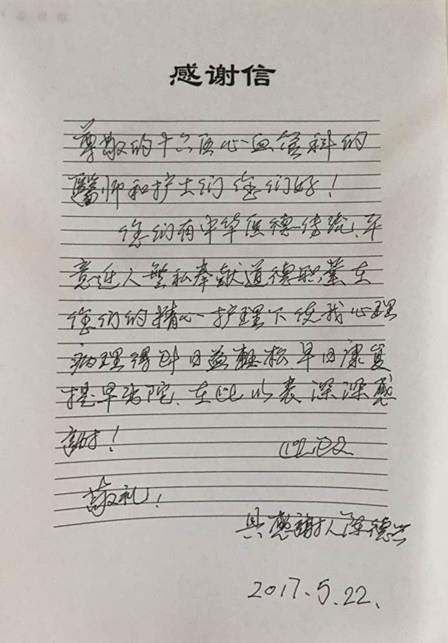 感谢信
尊敬的十六医心血管科的
醫师和护士们您们好！
您们有中华医德传统、平
意近人無私奉献道德职業在
您们的精心护理下使我心理
病理得到日益輕松早日康复
提早出院、在此以表深深感
謝！
此致
敬礼！
具感謝人 陈德
2017.5.22.